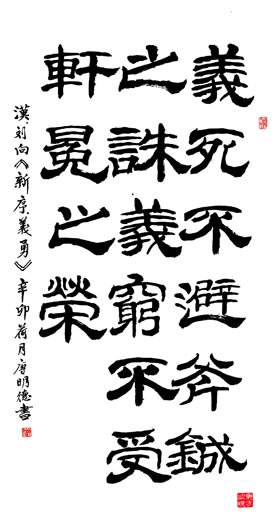 義死不避斧鉞
之誅義窮不受
軒冕之榮
漢·刘向《新序·義勇》辛卯荷月唐明德書